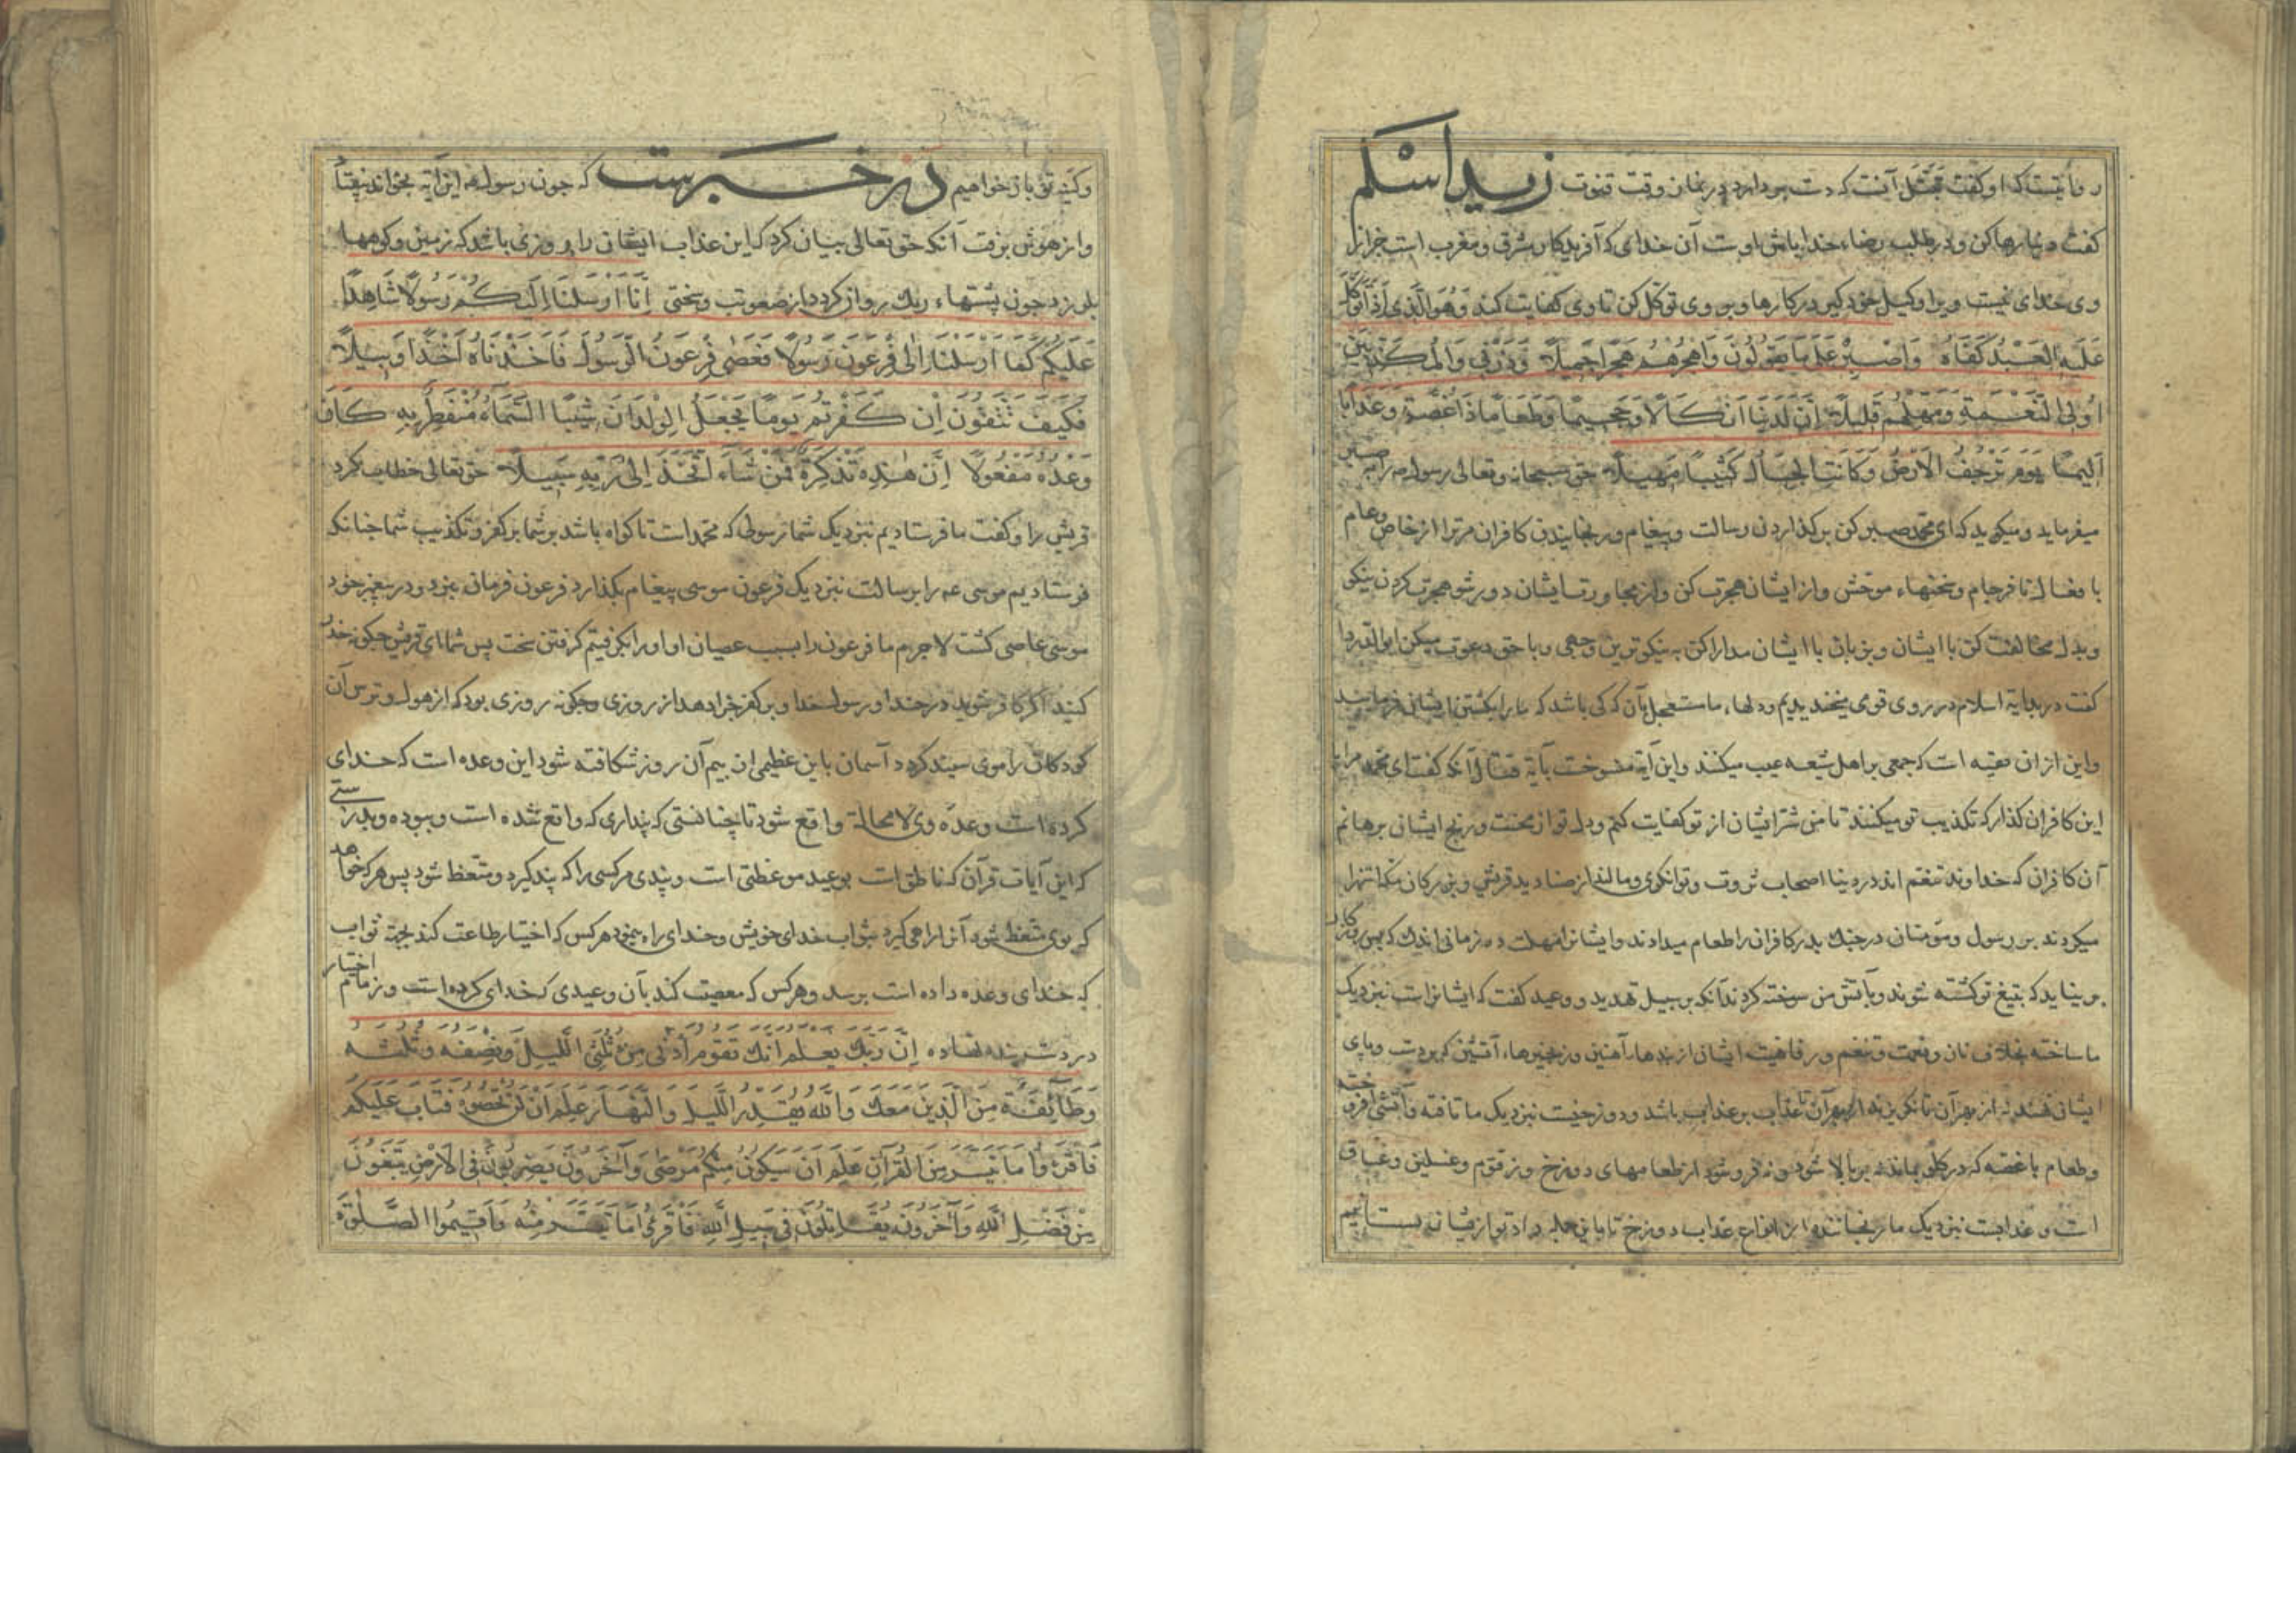 روایتست که او گفت تبتل آنست که دست بردارد در نماز وقت قنوت زید اسلم
گفت دنیا رها کن و در طلب رضاء خدا باش اوست آن خدای که آفریدگار مشرق و مغرب است جز از
وی خدای نیست ویرا وکیل خود گیر در کارها و بر وی توکل کن تا وی کفایت کند وَهُوَ الَّذی اذا تَوَکَّلَ
عَلَیهِ العَبْدُ کَفَاهُ وَاصْبِرْ عَلَى مَا يَقُولُونَ وَاهْجُرْهُمْ هَجْرًا جَمِيلًا وَذَرْنِي وَالْمُكَذِّبِينَ
اُولِي النَّعْمَةِ وَمَهِّلْهُمْ قَلِيلًا إِنَّ لَدَيْنَا أَنْكَالًا وَجَحِيمًا وَطَعَامًا ذَا غُصَّةٍ وَعَذَابًا
أَلِيمًا يَوْمَ تَرْجُفُ الْأَرْضُ وَكَانَتِ الْجِبَالُ كَثِيبًا مَهِيلًا حق سبحانه و تعالی رسول را صبر
میفرماید و میگوید که ای محمد صبر کن بر گذاردن رسالت و پیغام و رنجانیدن کافران مرترا از خاص و عام
با فعال نافرجام و سخنهاء موحش و از ایشان هجرت کن و از مجاورت ایشان دور شو هجرت کردن نیکو
و بدل مخالفت کن با ایشان و بزبان با ایشان مدارا کن به نیکوترین وجهی و با حق دعوت میکن ابو الدردا
گفت در بدایه اسلام در روی قومی میخندیدیم و دلهاء ما مستعجل بآن که کی باشد که ما را بکشتن ایشان فرمایند
و این از ان تقیه است که جمعی بر اهل شیعه عیب میکنند و این آیه منسوخست بآیة قتال آنکه گفت ای محمد مرا با
این کافران گذار که تکذیب تو میکنند تا من شر ایشان از تو کفایت کنم و دل تو از محنت و رنج ایشان برهانم
آن کافران که خداوند تنعم اند در دنیا اصحاب ثروت و توانگری و مالند از صنادید قریش و بزرگان مکه انتهرا
میکردند بر رسول و مؤمنان در جنک بدر کافران را طعام میدادند و ایشانرا مهلت ده زمانی اندک که بس روزگار
بر نیاید که بتیغ تو کشته شوند و بآتش من سوخته کردند آنکه بر سبیل تهدید و وعید گفت که ایشانراست نزدیک
ما ساخته بخلاف نان و نعمت و تنعم و رفاهیت ایشان از بندهاء آهنین و زنجیرهاء آتشین که بر دست و پای
ایشان نهند نه از بهر آن تا نکریزند از بهر آن تا عذاب بر عذاب باشد و دوزخیست نزدیک ما تافته و آتشی افروخته
و طعام با غصه که در گلو بماند نه بر بالا شود و نه فرو شود از طعامهای دوزخ و زقوم و غسلین و غساق
است و عذابست نزدیک ما رنجاننده از انواع عذاب دوزخ تا باین جمله داد تو از ایشان بستانیم
و کینه تو باز خواهیم در خبرست که چون رسول این آیه بخواند بیفتاد
و از هوش برفت آنکه حق تعالی بیان کرد که این عذاب ایشان را روزی باشد که زمین و کوهها
بلرزد چون پشتهاء ریک روان کردد از صعوبت و سختی اِنَّا اَرْسَلْنَا اِلَيْكُمْ رَسُولًا شَاهِدًا
عَلَيْكُمْ كَمَا اَرْسَلْنَا اِلٰى فِرْعَوْنَ رَسُولًا فَعَصٰى فِرْعَوْنُ الرَّسُولَ فَاَخَذْنَاهُ اَخْذًا وَبِيلًا
فَكَيْفَ تَتَّقُونَ اِنْ كَفَرْتُمْ يَوْمًا يَجْعَلُ الْوِلْدَانَ شِيبًا السَّمَاءُ مُنْفَطِرٌ بِهِ كَانَ
وَعْدُهُ مَفْعُولًا اِنَّ هٰذِهِ تَذْكِرَةٌ فَمَنْ شَاءَ اتَّخَذَ اِلٰى رَبِّهِ سَبِيلًا حق تعالی خطاب کرد
قریش را و گفت ما فرستادیم نزدیک شما رسولی که محمد است تا گواه باشد بر شما بر کفر و تکذیب شما چنانک
فرستادیم موسی عه را برسالت نزدیک فرعون موسی پیغام بگذارد فرعون فرمان نبرد و در پیغمبر خود
موسی عاصی گشت لاجرم ما فرعون را بسبب عصیان او اورا بگرفتیم گرفتن سخت پس شما ای قریش چگونه حذر
کنید اگر کافر شوید در خدا و رسول خدا و بر کفر جزا دهد از روزی و چگونه روزی بود که از هول و ترس آن
کودکان را موی سپید گردد آسمان باین عظیمی از بیم آن روز شکافته شود این وعده است که خدای
کرده است و وعده وی لا محالة واقع شود تا چنانستی که پنداری که واقع شده است و ببوده و بدرستی
که این آیات قرآن که ناطق است بوعید موعظتی است و پندی هر کسی را که پند گیرد و متعظ شود پس هر که خواهد
که بوی متعظ شود آنرا راهی گیرد بثواب خدای خویش و خدای راه بنمود هر کس که اختیار طاعت کند بجهة ثواب
که خدای وعده داده است برسد و هر کس که معصیت کند بآن وعیدی که خدای کرده است و زمام اختیار
در دست بنده نهاده اِنَّ رَبَّكَ يَعْلَمُ اَنَّكَ تَقُومُ اَدْنٰى مِنْ ثُلُثَيِ اللَّيْلِ وَنِصْفَهُ وَثُلُثَهُ
وَطَائِفَةٌ مِنَ الَّذِينَ مَعَكَ وَاللهُ يُقَدِّرُ اللَّيْلَ وَالنَّهَارَ عَلِمَ اَنْ لَنْ تُحْصُوهُ فَتَابَ عَلَيْكُمْ
فَاقْرَؤُا مَا تَيَسَّرَ مِنَ الْقُرْآنِ عَلِمَ اَنْ سَيَكُونُ مِنْكُمْ مَرْضٰى وَآخَرُونَ يَضْرِبُونَ فِي الْاَرْضِ يَبْتَغُونَ
مِنْ فَضْلِ اللهِ وَآخَرُونَ يُقَاتِلُونَ فِي سَبِيلِ اللهِ فَاقْرَؤُا مَا تَيَسَّرَ مِنْهُ وَاَقِيمُوا الصَّلٰوةَ